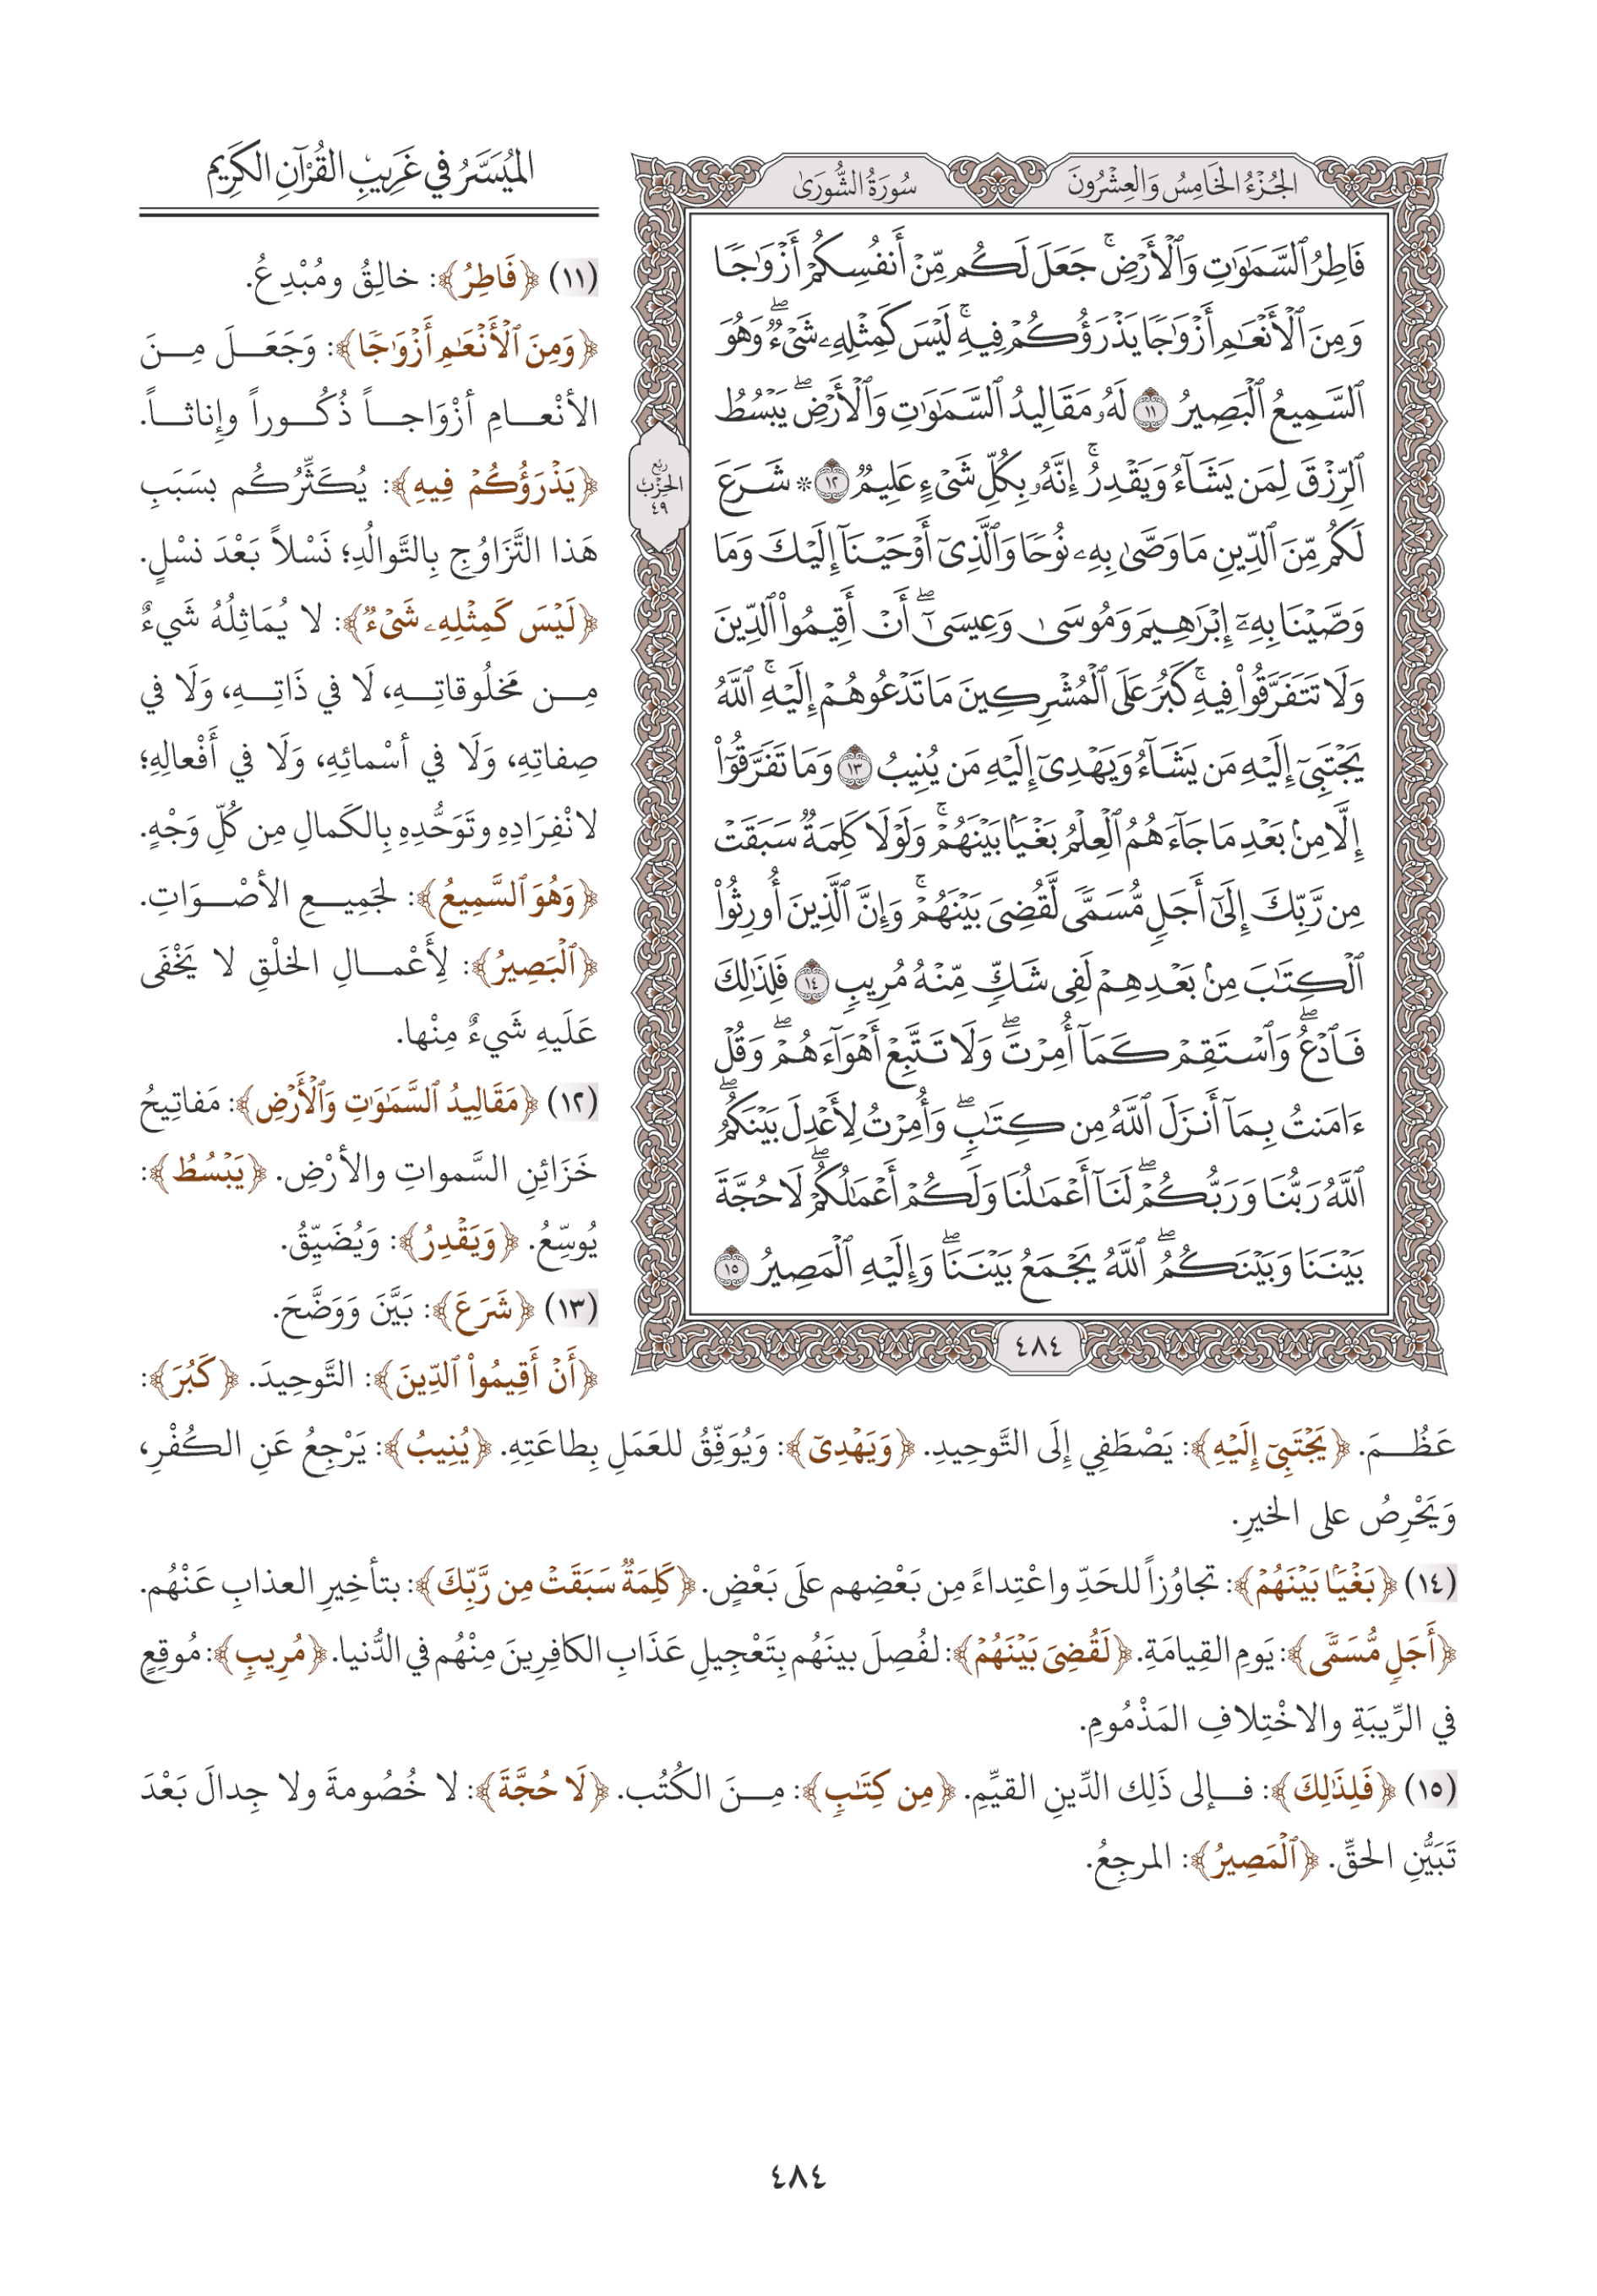 الجُزْءُ الخَامِسُ وَالعِشْرُونَ
سُورَةُ الشُّورَىٰ
فَاطِرُ ٱلسَّمَٰوَٰتِ وَٱلۡأَرۡضِۚ جَعَلَ لَكُم مِّنۡ أَنفُسِكُمۡ أَزۡوَٰجٗا
وَمِنَ ٱلۡأَنۡعَٰمِ أَزۡوَٰجٗا يَذۡرَؤُكُمۡ فِيهِۚ لَيۡسَ كَمِثۡلِهِۦ شَيۡءٞۖ وَهُوَ
ٱلسَّمِيعُ ٱلۡبَصِيرُ ١١ لَهُۥ مَقَالِيدُ ٱلسَّمَٰوَٰتِ وَٱلۡأَرۡضِۖ يَبۡسُطُ
ٱلرِّزۡقَ لِمَن يَشَآءُ وَيَقۡدِرُۚ إِنَّهُۥ بِكُلِّ شَيۡءٍ عَلِيمٞ ١٢ * شَرَعَ
لَكُم مِّنَ ٱلدِّينِ مَا وَصَّىٰ بِهِۦ نُوحٗا وَٱلَّذِيٓ أَوۡحَيۡنَآ إِلَيۡكَ وَمَا
وَصَّيۡنَا بِهِۦٓ إِبۡرَٰهِيمَ وَمُوسَىٰ وَعِيسَىٰٓۖ أَنۡ أَقِيمُواْ ٱلدِّينَ
وَلَا تَتَفَرَّقُواْ فِيهِۚ كَبُرَ عَلَى ٱلۡمُشۡرِكِينَ مَا تَدۡعُوهُمۡ إِلَيۡهِۚ ٱللَّهُ
يَجۡتَبِيٓ إِلَيۡهِ مَن يَشَآءُ وَيَهۡدِيٓ إِلَيۡهِ مَن يُنِيبُ ١٣ وَمَا تَفَرَّقُوٓاْ
إِلَّا مِنۢ بَعۡدِ مَا جَآءَهُمُ ٱلۡعِلۡمُ بَغۡيَۢا بَيۡنَهُمۡۚ وَلَوۡلَا كَلِمَةٞ سَبَقَتۡ
مِن رَّبِّكَ إِلَىٰٓ أَجَلٖ مُّسَمّٗى لَّقُضِيَ بَيۡنَهُمۡۚ وَإِنَّ ٱلَّذِينَ أُورِثُواْ
ٱلۡكِتَٰبَ مِنۢ بَعۡدِهِمۡ لَفِي شَكّٖ مِّنۡهُ مُرِيبٖ ١٤ فَلِذَٰلِكَ
فَٱدۡعُۖ وَٱسۡتَقِمۡ كَمَآ أُمِرۡتَۖ وَلَا تَتَّبِعۡ أَهۡوَآءَهُمۡۖ وَقُلۡ
ءَامَنتُ بِمَآ أَنزَلَ ٱللَّهُ مِن كِتَٰبٖۖ وَأُمِرۡتُ لِأَعۡدِلَ بَيۡنَكُمُۖ
ٱللَّهُ رَبُّنَا وَرَبُّكُمۡۖ لَنَآ أَعۡمَٰلُنَا وَلَكُمۡ أَعۡمَٰلُكُمۡۖ لَا حُجَّةَ
بَيۡنَنَا وَبَيۡنَكُمُۖ ٱللَّهُ يَجۡمَعُ بَيۡنَنَاۖ وَإِلَيۡهِ ٱلۡمَصِيرُ ١٥
رُبْعُ
الحِزْبِ
٤٩
٤٨٤
المُيَسَّرُ في غَرِيبِ القُرْآنِ الكَرِيمِ
(١١) ﴿فَاطِرُ﴾: خالِقُ ومُبْدِعُ.
﴿وَمِنَ ٱلۡأَنۡعَٰمِ أَزۡوَٰجٗا﴾: وَجَعَلَ مِنَ
الأنْعامِ أزْوَاجاً ذُكُوراً وإِناثاً.
﴿يَذۡرَؤُكُمۡ فِيهِ﴾: يُكَثِّرُكُم بسَبَبِ
هَذا التَّزَاوُجِ بِالتَّوالُدِ؛ نَسْلاً بَعْدَ نسْلٍ.
﴿لَيۡسَ كَمِثۡلِهِۦ شَيۡءٞ﴾: لا يُمَاثِلُهُ شَيءٌ
مِن مَخلُوقاتِهِ، لَا في ذَاتِهِ، وَلَا في
صِفاتِهِ، وَلَا في أسْمائِهِ، وَلَا في أَفْعالِهِ؛
لانْفِرَادِهِ وتَوَحُّدِهِ بِالكَمالِ مِن كُلِّ وَجْهٍ.
﴿وَهُوَ ٱلسَّمِيعُ﴾: لجَمِيعِ الأصْوَاتِ.
﴿ٱلۡبَصِيرُ﴾: لِأَعْمالِ الخلْقِ لا يَخْفَى
عَلَيهِ شَيءٌ مِنْها.
(١٢) ﴿مَقَالِيدُ ٱلسَّمَٰوَٰتِ وَٱلۡأَرۡضِ﴾: مَفاتِيحُ
خَزَائِنِ السَّمواتِ والأرْضِ. ﴿يَبۡسُطُ﴾:
يُوسِّعُ. ﴿وَيَقۡدِرُ﴾: وَيُضَيِّقُ.
(١٣) ﴿شَرَعَ﴾: بَيَّنَ وَوَضَّحَ.
﴿أَنۡ أَقِيمُواْ ٱلدِّينَ﴾: التَّوحِيدَ. ﴿كَبُرَ﴾:
عَظُمَ. ﴿يَجۡتَبِيٓ إِلَيۡهِ﴾: يَصْطَفِي إِلَى التَّوحِيدِ. ﴿وَيَهۡدِيٓ﴾: وَيُوَفِّقُ للعَمَلِ بِطاعَتِهِ. ﴿يُنِيبُ﴾: يَرْجِعُ عَنِ الكُفْرِ،
وَيَحْرِصُ على الخيرِ.
(١٤) ﴿بَغۡيَۢا بَيۡنَهُمۡ﴾: تجاوُزاً للحَدِّ واعْتِداءً مِن بَعْضِهم علَى بَعْضٍ. ﴿كَلِمَةٞ سَبَقَتۡ مِن رَّبِّكَ﴾: بتأخِيرِ العذابِ عَنْهُم.
﴿أَجَلٖ مُّسَمّٗى﴾: يَومِ القِيامَةِ. ﴿لَّقُضِيَ بَيۡنَهُمۡ﴾: لفُصِلَ بينَهُم بِتَعْجِيلِ عَذَابِ الكافِرِينَ مِنْهُم في الدُّنيا. ﴿مُرِيبٖ﴾: مُوقِعٍ
في الرِّيبَةِ والاخْتِلافِ المَذْمُومِ.
(١٥) ﴿فَلِذَٰلِكَ﴾: فإلى ذَلِك الدِّينِ القيِّمِ. ﴿مِن كِتَٰبٖ﴾: مِنَ الكُتُب. ﴿لَا حُجَّةَ﴾: لا خُصُومةَ ولا جِدالَ بَعْدَ
تَبَيُّنِ الحقِّ. ﴿ٱلۡمَصِيرُ﴾: المرجِعُ.
٤٨٤